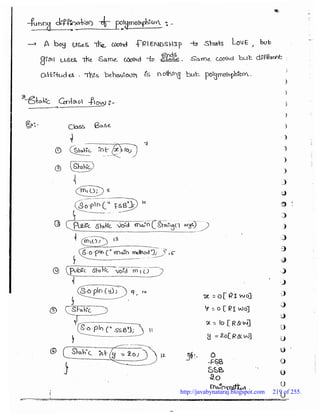 funny definition of polymorphism :-
→ A boy uses the word FRIENDSHIP to starts LOVE, but
girl uses the same word to ends. Same word but different
attitudes. This behaviour is nothing but polymorphism.
* Static Control flow :-
Ex:- class Base
{
① static int x=10; 7
② static
{
m1(); 8
S.o.pln("FSB"); 10
}
③ public static void main(String[] args)
{
m1(); 13
S.o.pln("main method"); 15
}
④ public static void m1()
{
S.o.pln(y); 9, 14
}
⑤ static
{
S.o.pln("SSB"); 11
}
⑥ static int y=20; 12
}
x = 0 [RIWO]
y = 0 [RIWO]
x = 10 [R&W]
y = 20 [R&W]
O/P:- 0
FSB
SSB
20
main method
http://javabynataraj.blogspot.com 219 of 255.